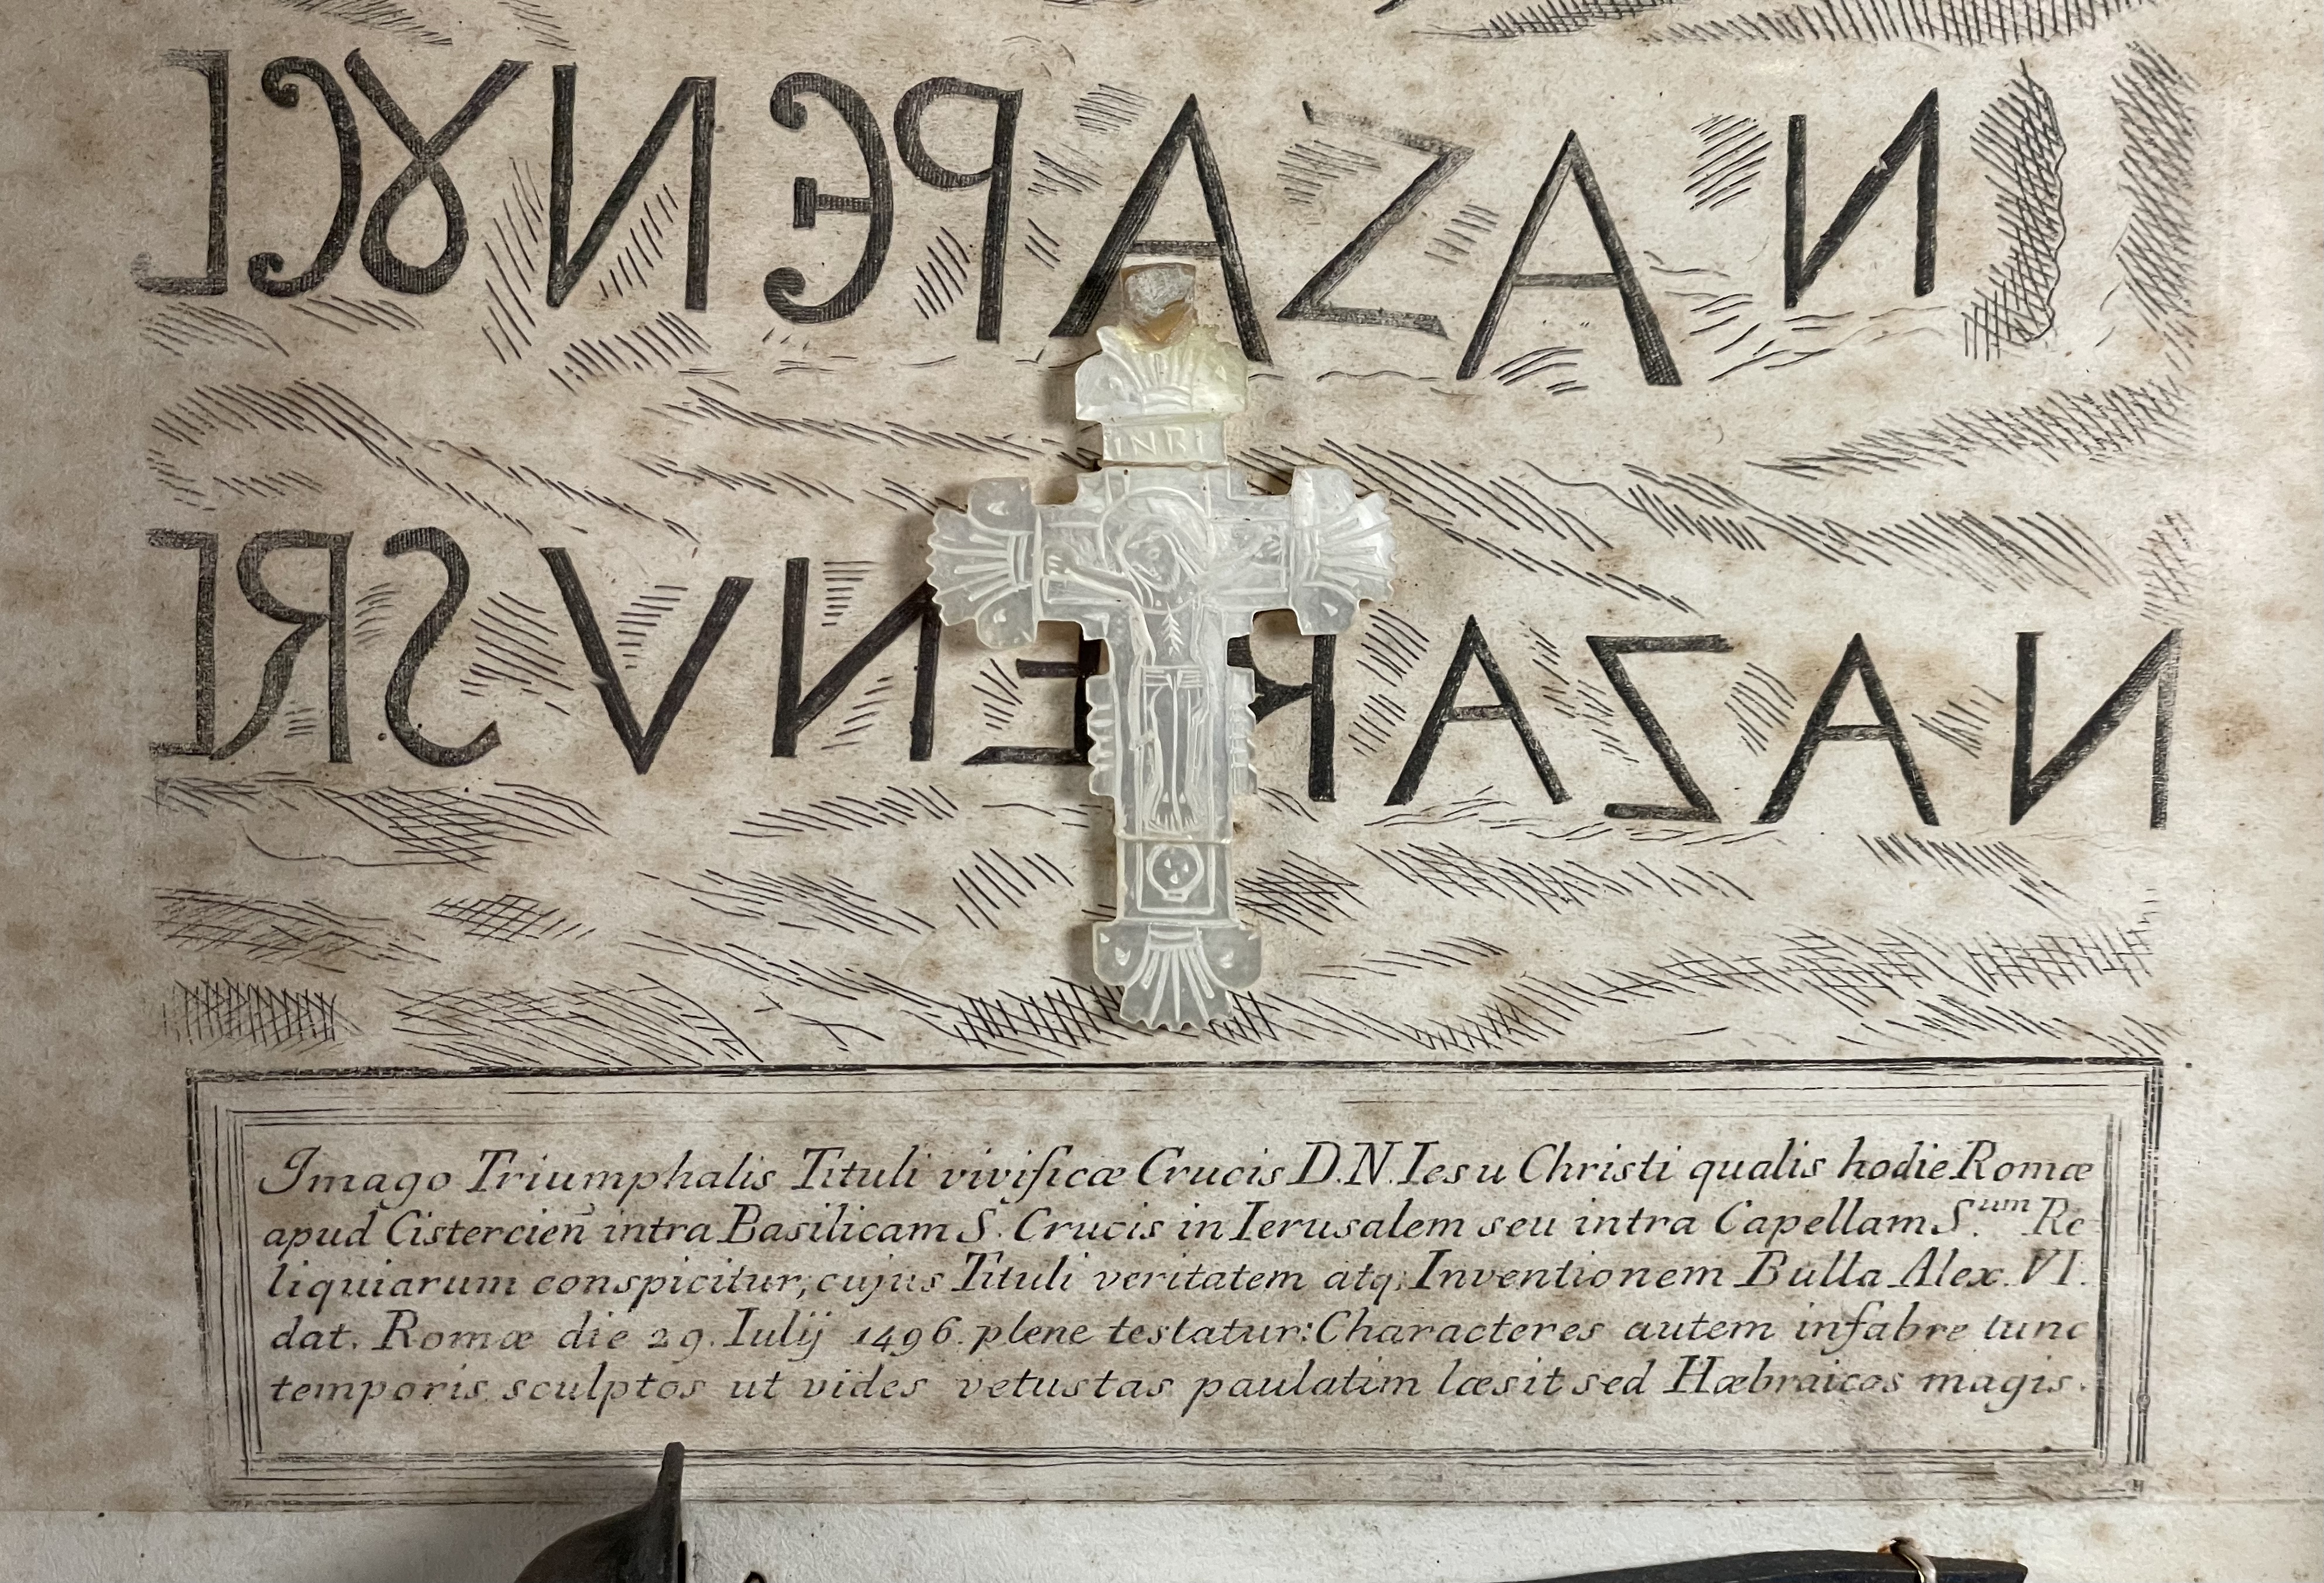 NAZAPЄNȢC
INRI
NAZARENVS R
Imago Triumphalis Tituli vivificæ Crucis D.N. Iesu Christi qualis hodie Romæ
apud Cistercieñ intra Basilicam S. Crucis in Ierusalem seu intra Capellam S.um Re
liquiarum conspicitur, cujus Tituli veritatem atq; Inventionem Bulla Alex. VI.
dat. Romæ die 29. Iulij 1496. plene testatur: Characteres autem infabre tunc
temporis sculptos ut vides vetustas paulatim læsit sed Hæbraicos magis.